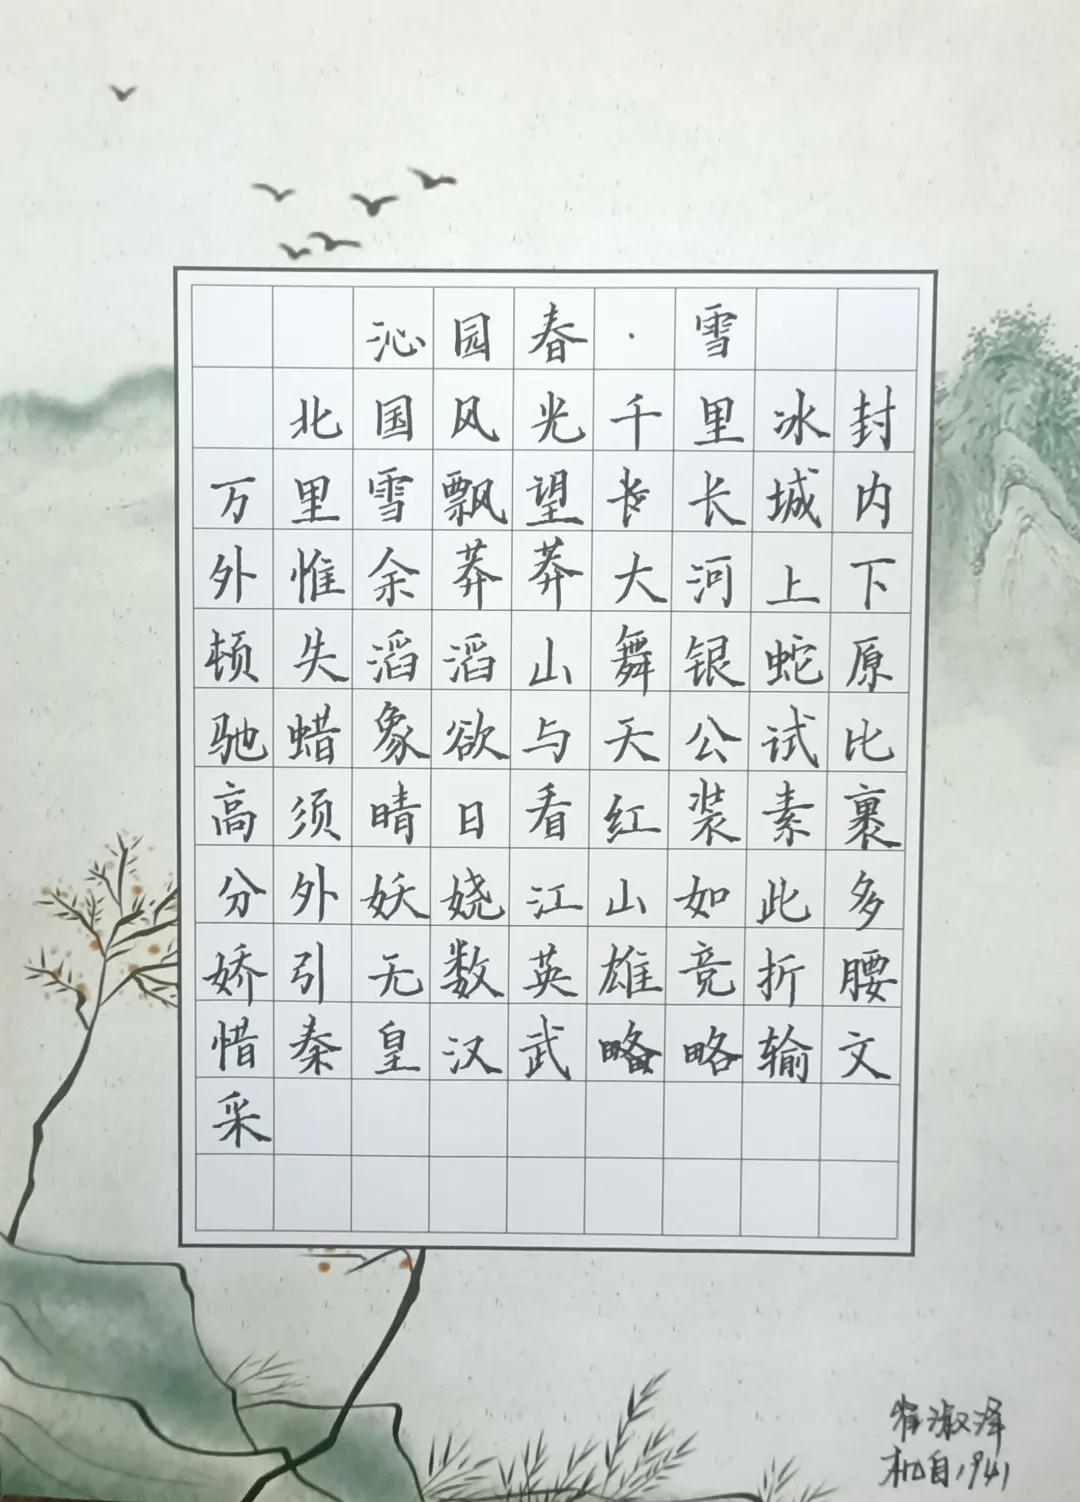 沁园春·雪
北国风光千里冰封
万里雪飘望长长城内
外惟余莽莽大河上下
顿失滔滔山舞银蛇原
驰蜡象欲与天公试比
高须晴日看红装素裹
分外妖娆江山如此多
娇引无数英雄竞折腰
惜秦皇汉武略略输文
采
淑泽
机自1941